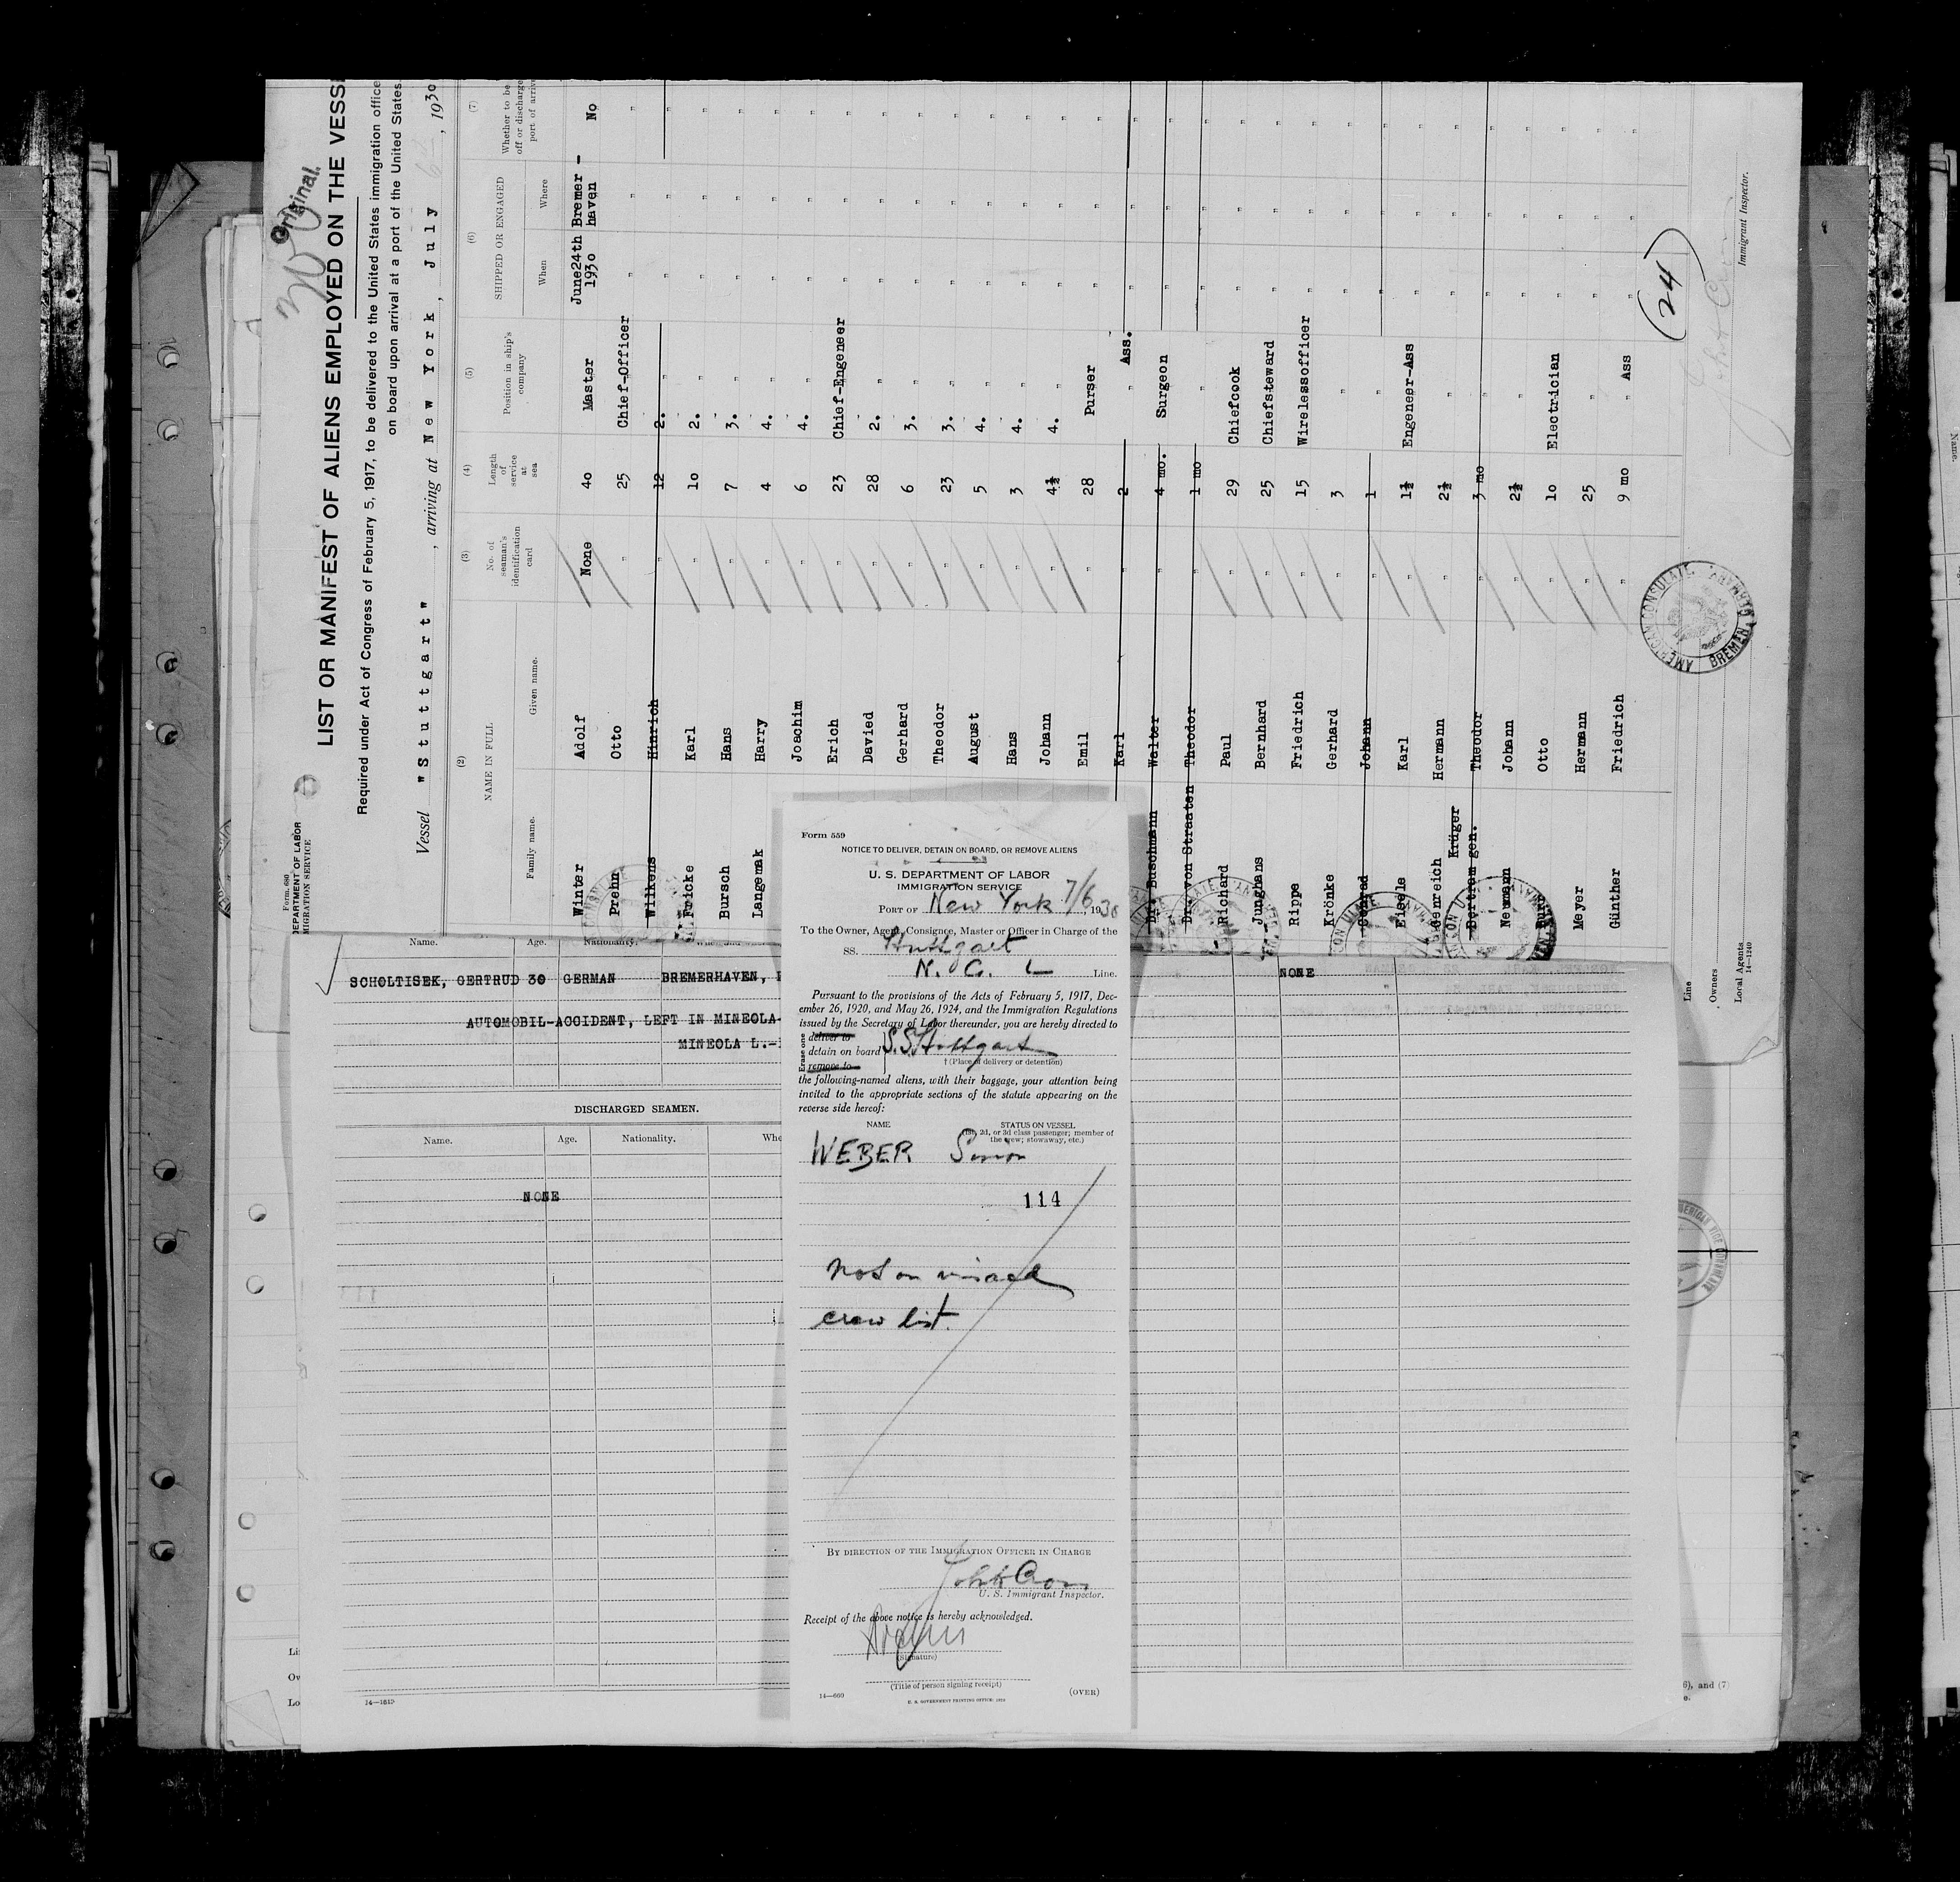 Original.
LIST OR MANIFEST OF ALIENS EMPLOYED ON THE VESS
Required under Act of Congress of February 5, 1917, to be delivered to the United States immigration office
on board upon arrival at a port of the United States
Vessel "Stuttgart", arriving at New York, July 6, 1930
Form 680
DEPARTMENT OF LABOR
MIGRATION SERVICE
(2) (3) (4) (5) (6) (7)
NAME IN FULL
Family name. Given name.
No. of seaman's identification card
Length of service at sea
Position in ship's company
SHIPPED OR ENGAGED
When Where
Whether to be
off or discharge
port of arriv
Winter Adolf None 40 Master June24th 1930 Bremer-haven No
Prehn Otto " 25 Chief-Officer " " "
Wilkens Hinrich " 12 2. " " " "
Fricke Karl " 10 2. " " " "
Bursch Hans " 7 3. " " " "
Langemak Harry " 4 4. " " " "
Joachim " 6 4. " " " "
Erich " 23 Chief-Engeneer " " "
Davied " 28 2. " " " "
Gerhard " 6 3. " " " "
Theodor " 23 3. " " " "
August " 5 4. " " " "
Hans " 3 4. " " " "
Johann " 4½ 4. " " " "
Emil " 28 Purser " " "
Karl " 2 " Ass. " " "
Dr. Buschmann Walter " 4 mo. Surgeon " " "
Dr. von Straaten Theodor " 1 mo " " " "
Richard Paul " 29 Chiefcook " " "
Junghans Bernhard " 25 Chiefsteward " " "
Rippe Friedrich " 15 Wirelessofficer " " "
Krönke Gerhard " 3 " " " "
Johann " 1 " " " "
Eisele Karl " 1½ Engeneer-Ass " " "
Hermann " 2½ " " " "
Krüger
Bertram gen. Theodor " 3 mo " " " "
Neumann Johann " 2½ " " " "
Otto " 10 Electrician " " "
Meyer Hermann " 25 " " " "
Günther Friedrich " 9 mo " Ass " " "
(24)
Immigrant Inspector.
AMERICAN CONSULATE
BREMEN, GERMANY
Line
Owners
Local Agents
14—1240
Name. Age. Nationality.
SCHOLTISEK, GERTRUD 30 GERMAN BREMERHAVEN,
NONE
AUTOMOBIL-ACCIDENT, LEFT IN MINEOLA-
MINEOLA L.-
DISCHARGED SEAMEN.
Name. Age. Nationality. Whe
NONE
14—1519
Form 559
NOTICE TO DELIVER, DETAIN ON BOARD, OR REMOVE ALIENS
U. S. DEPARTMENT OF LABOR
IMMIGRATION SERVICE
PORT OF New York 7/6, 1930
To the Owner, Agent, Consignee, Master or Officer in Charge of the
SS. Stuttgart
N. G. L Line.
Pursuant to the provisions of the Acts of February 5, 1917, Dec-
ember 26, 1920, and May 26, 1924, and the Immigration Regulations
issued by the Secretary of Labor thereunder, you are hereby directed to
Erase one
deliver to
detain on board S.S. Stuttgart
remove to
† (Place of delivery or detention)
the following-named aliens, with their baggage, your attention being
invited to the appropriate sections of the statute appearing on the
reverse side hereof:
NAME STATUS ON VESSEL
(1st, 2d, or 3d class passenger; member of
the crew; stowaway, etc.)
WEBER Simon
114
Not on visaed
crew list.
BY DIRECTION OF THE IMMIGRATION OFFICER IN CHARGE
U. S. Immigrant Inspector.
Receipt of the above notice is hereby acknowledged.
(Signature)
(Title of person signing receipt)
14—669
U. S. GOVERNMENT PRINTING OFFICE:
(OVER)
6), and (7)